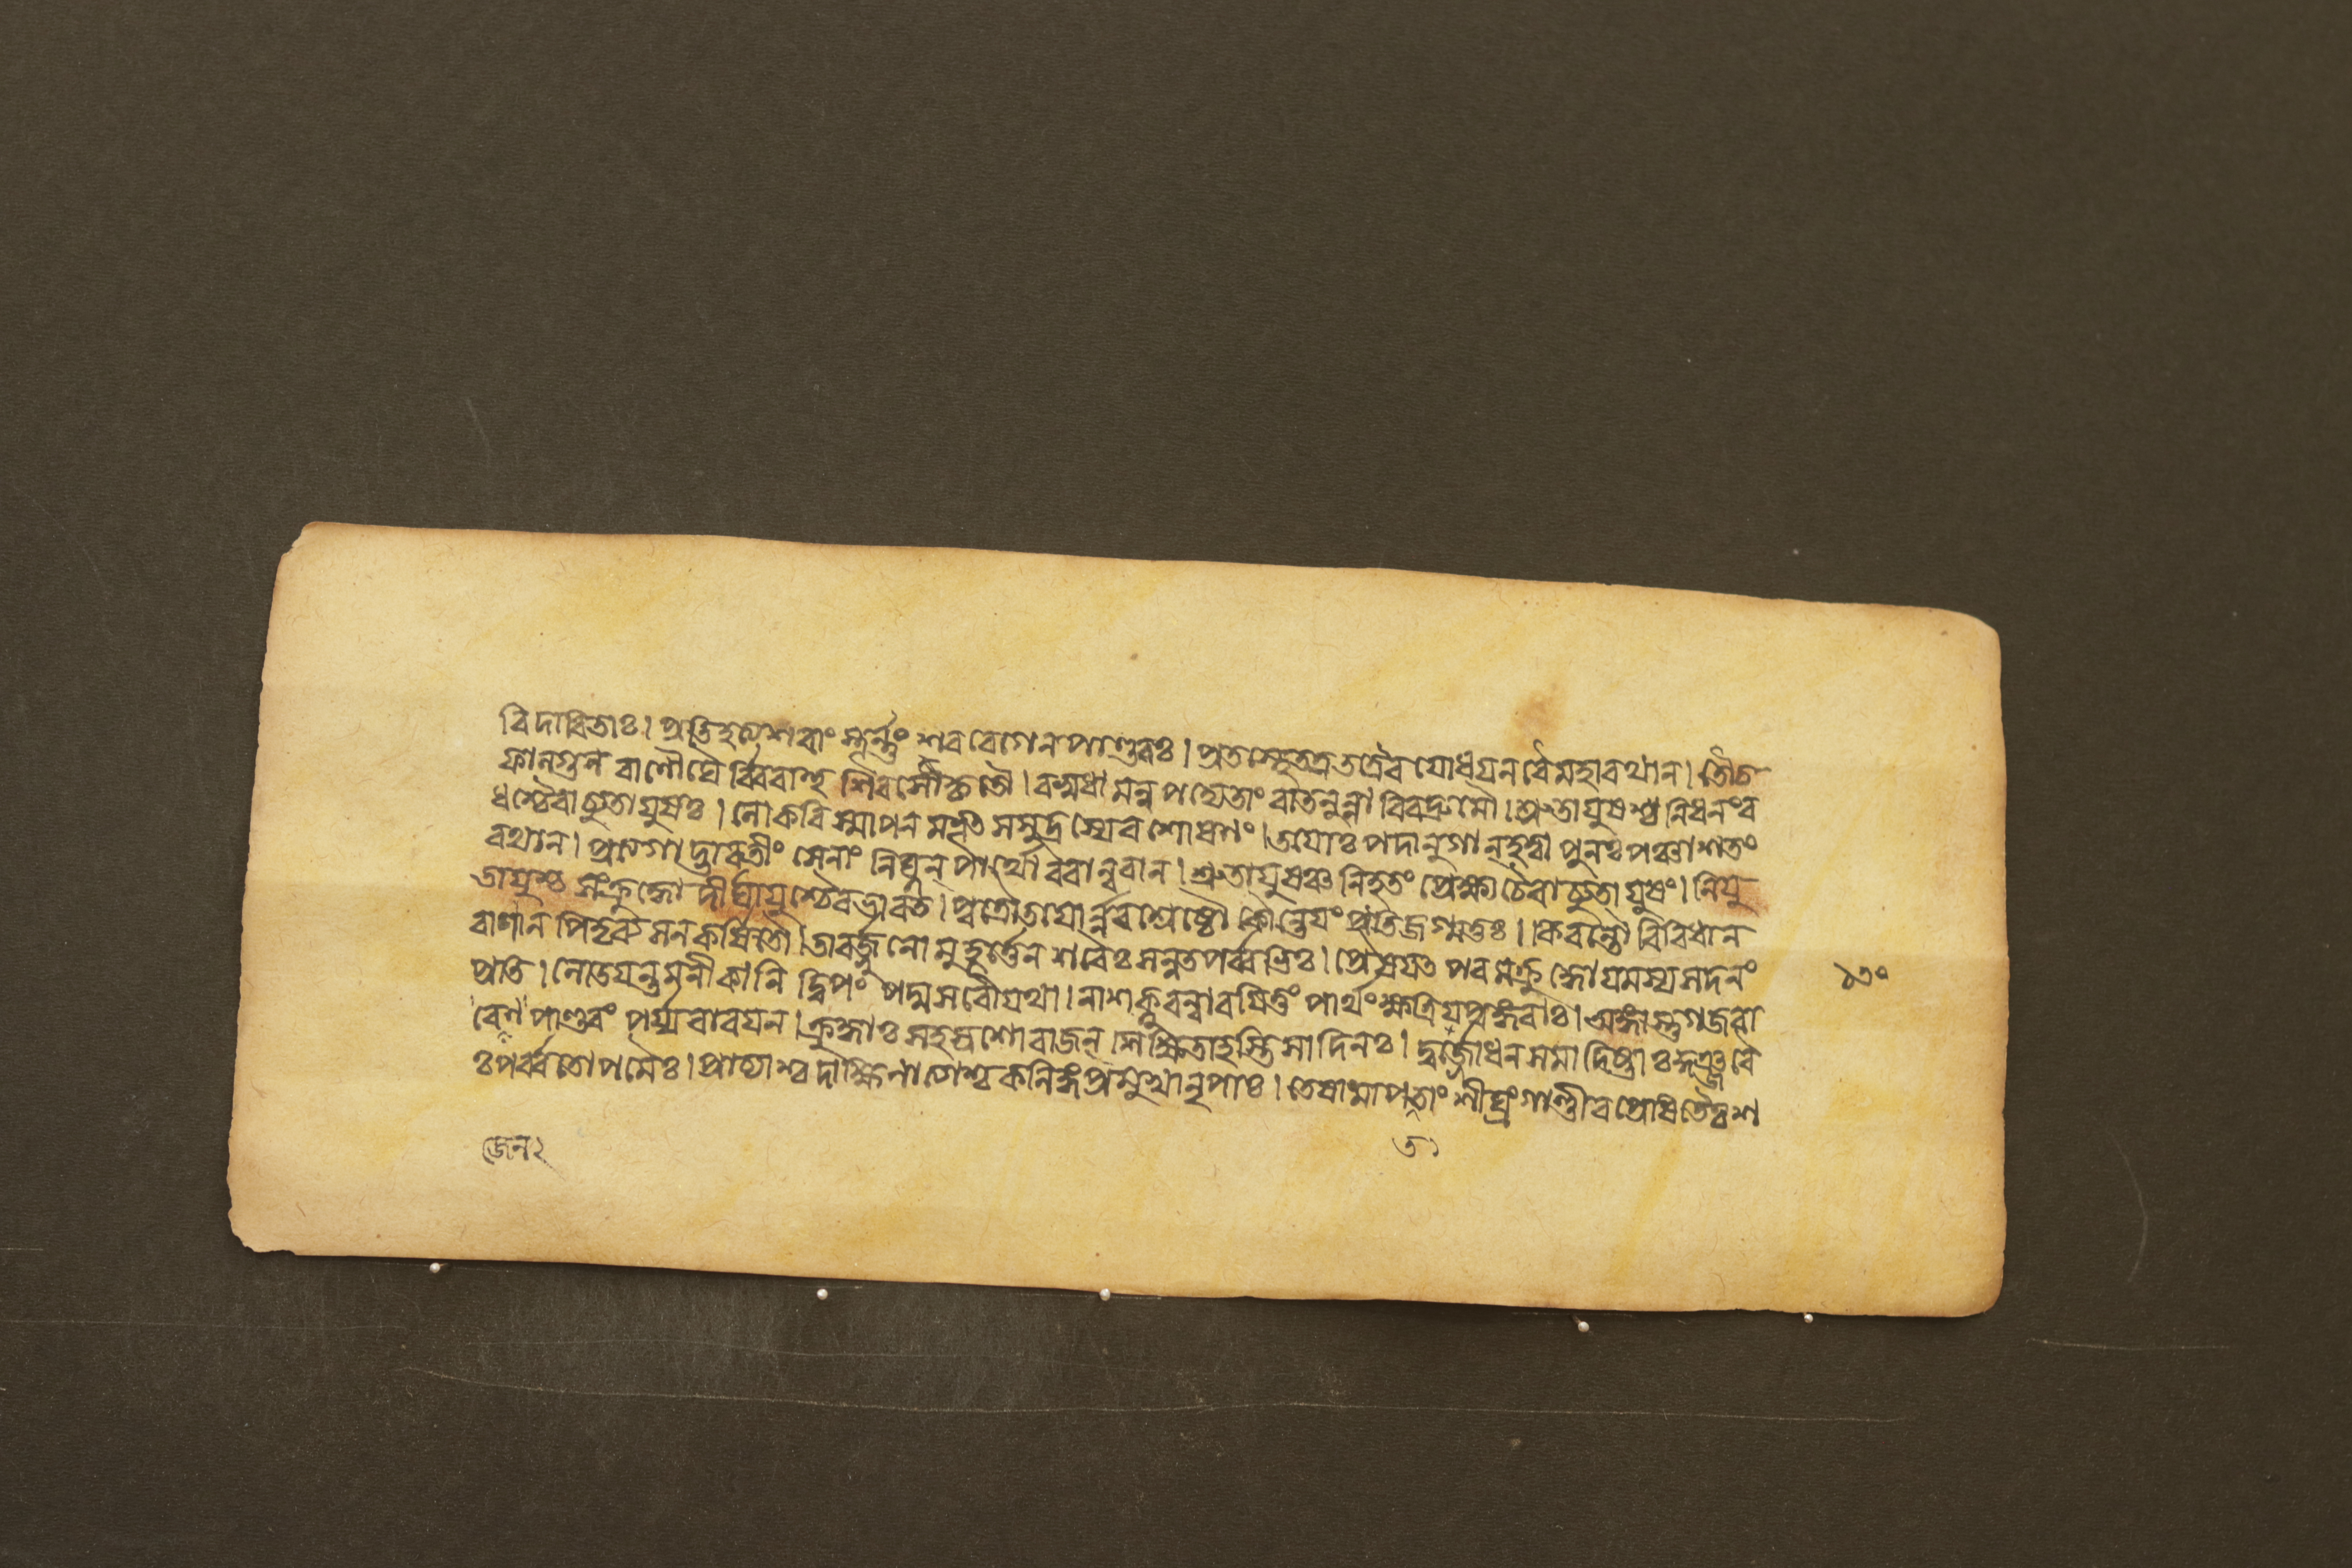 বিদারিতাঃ। প্রতিহত্যশরাং স্তূর্ন্নং শরবেগেনপাণ্ডবঃ। প্রতস্থেতত্রতত্রৈব যোধয়ন বৈমহারথান। তৌচ
ফাল্গুন বাণৌঘৈ র্ব্বিবাহু শিরসৌকৃতৌ। বসুধা মন্ব পদ্যেতাং বাতনুন্না বিবদ্রুমৌ। শ্রুতায়ুষশ্চ নিধনংব
ধশ্চৈবাচ্যুতায়ুষঃ। লোকবিস্মাপন মভূৎ সমুদ্রস্যেব শোষণং। তয়োঃ পদানুগান্হত্বা পুনঃপঞ্চাশতং
রথান। প্রাগা দ্ভারতীং সেনাং নিঘ্নন্ পার্থো বরান্বরান। শ্রুতায়ুষঞ্চ নিহতং প্রেক্ষ্যচৈবাচ্যুতায়ুষং। নিয়ু
তায়ুশ্চ সংক্রুদ্ধো দীর্ঘায়ুশ্চৈবভারত। পুত্রৌতয়োর্ন্নরশ্রেষ্ঠৌ কৌন্তেয়ং প্রতিজগ্মতুঃ। কিরন্তৌ বিবিধান
বাণান পিতৃব্যসনকর্ষিতৌ। তাবর্জ্জুনো মুহূর্ত্তেন শরৈঃ সন্নতপর্ব্বভিঃ। প্রেষয়ৎ পরমক্রুদ্ধো যমস্যসদনং
প্রতি। লোডয়ন্তমনীকানি দ্বিপং পদ্মসরোয়থা। নাশক্নুবন্বারয়িতুং পার্থংক্ষত্রিয়পুঙ্গবাঃ। অঙ্গাস্তুগজবা
রেণ পাণ্ডবং পর্য্যবারয়ন। ক্রুদ্ধাঃ সহস্রশোরাজন্ শিক্ষিতাহস্তিসাদিনঃ। দুর্য্যোধনসমাদিষ্টাঃ কুঞ্জরৈ
ঃপর্ব্বতোপমৈঃ। প্রাচ্যাশ্চ দাক্ষিণাত্যেশ্চ কলিঙ্গপ্রমুখানৃপাঃ। তেষামাপততাং শীঘ্রং গাণ্ডীবপ্রেষিতৈঃশ
১৩০
জেন২
ত১